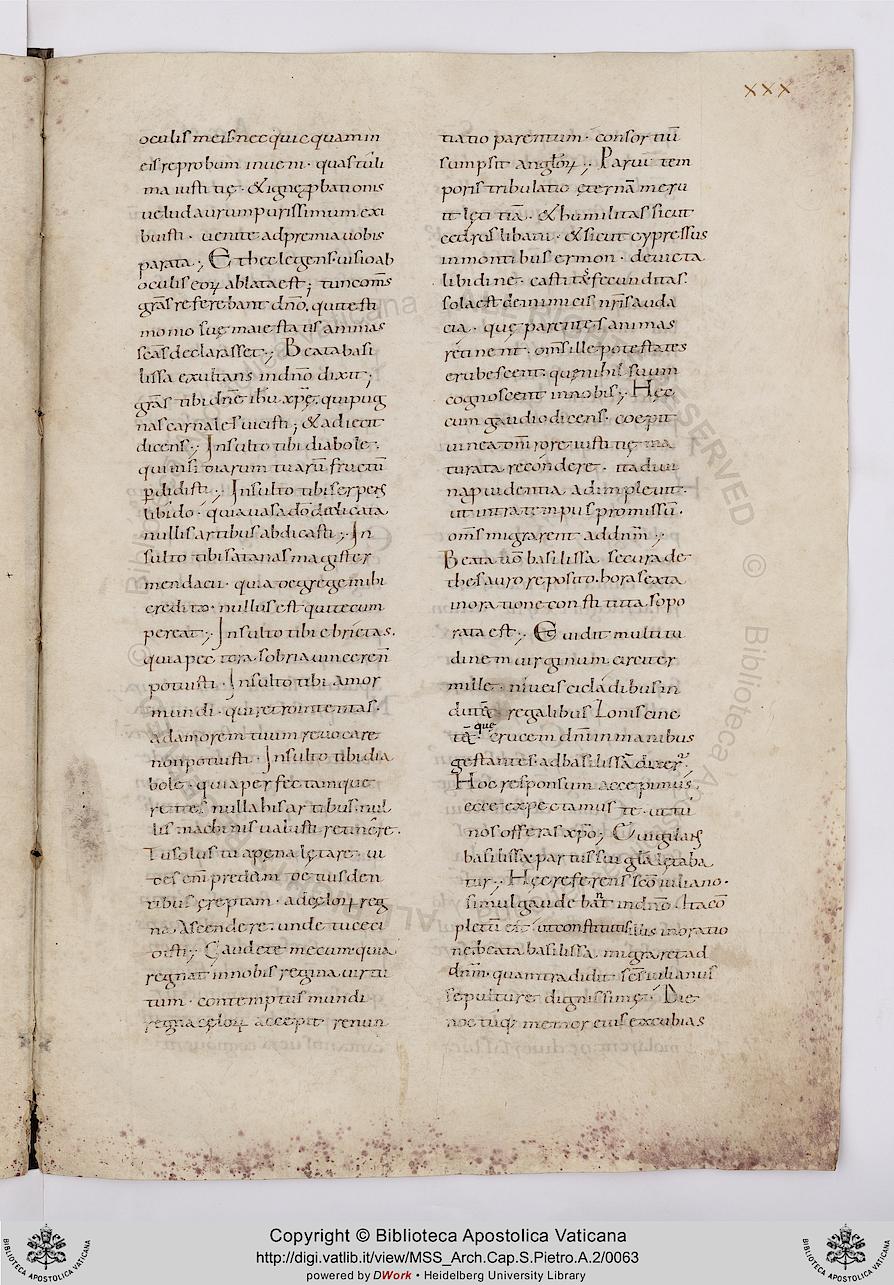 xxx
oculis meis nec quicquam in
eis reprobum inueni · quas tuli
ma iusti tię · & igne ꝓbationis
uelud aurum purissimum exi
buisti · uenite ad premia uobis
parata ; Et hec legens uisio ab
oculis eoꝝ ablata est ; tunc om̄s
grās referebant dnō, qui testi
monio suę maiestatis animas
sc̄as declarasset ; Beata basi
lissa exultans in dnō dixit ;
grās tibi dn̄e ihū xp̄e, qui pug
nas carnales uicisti ; & adiecit
dicens ; Insulto tibi diabole ·
qui insidiarum tuarū fructū
ꝑdidisti ; Insulto tibi serpens
libido · quia uasa dō dedicata
nullis artibus abdicasti ; In
sulto tibi satanas magister
mendacii · quia de grege mihi
credito · nullus est qui tecum
pereat ; Insulto tibi ebrietas ·
quia pectora sobria uincere n̄
potuisti · Insulto tibi amor
mundi · qui retro intentas ·
ad amorem tuum reuocare
non potuisti · Insulto tibi dia
bole · quia perfectam que
nulla bis artibus nul
lis machinis ualuisti retinere ·
Tu solus tu a pena lętare · ui
des em̄ predam de tuis den
tibus ęreptam · ad cęloꝝ reg
na Ascendere · unde tu ceci
disti ; Gaudete mecum · quia
regnat in nobis regina uirtu
tum · contemptus mundi
regna cęloꝝ accepit renun
tiatio parentum · consortiū
sumpsit anglōꝝ ; Paruū tem
poris tribulatio eternā meru
it lęti tiā · & humilitas sicut
cedros libani · & sicut cypressus
in montibus ermon · deuicta
libidine · castitas fecunditas ·
sola est de inimicis nr̄is auda
cia · quę parentes animas
retinent · om̄s ille potestates
erubescent · quę nihil suum
cognoscent in nobis ; Hęc
cum gaudio dicens · coepit
uinea om̄i rore iustitię ma
turata recondere · ita diui
na ꝓuidentia adimpleuit ·
ut intra tempus promissū ·
om̄s migrarent ad dnm̄ ;
Beata uō basilissa secura de
thesauro reposito · hora sexta
in oratione constituta sopo
rata est ; Et uidit multitu
dinem uirginum circiter
mille · niueis cicladibus in
dutę regalibus Zonis cinc
tę que crucem dn̄i in manibus
gestantes · ad basilissā dixer
Hoc responsum accepimus,
ecce expectamus te · ut tu
nos offeras xp̄o ; Euigilans
basilissa partus sui gl̄a lętaba
tur ; Hęc referens sc̄o iuliano ·
simul gaudebant in dnō · Ita cō
pletū est · ut constitutis illis in oratio
ne beata basilissa migraret ad
dnm̄ · quam tradidit sc̄s iulianus
sepulture dignissimę · Die
noctuq; memor eius excubias
Copyright © Biblioteca Apostolica Vaticana
http://digi.vatlib.it/view/MSS_Arch.Cap.S.Pietro.A.2/0063
powered by DWork • Heidelberg University Library